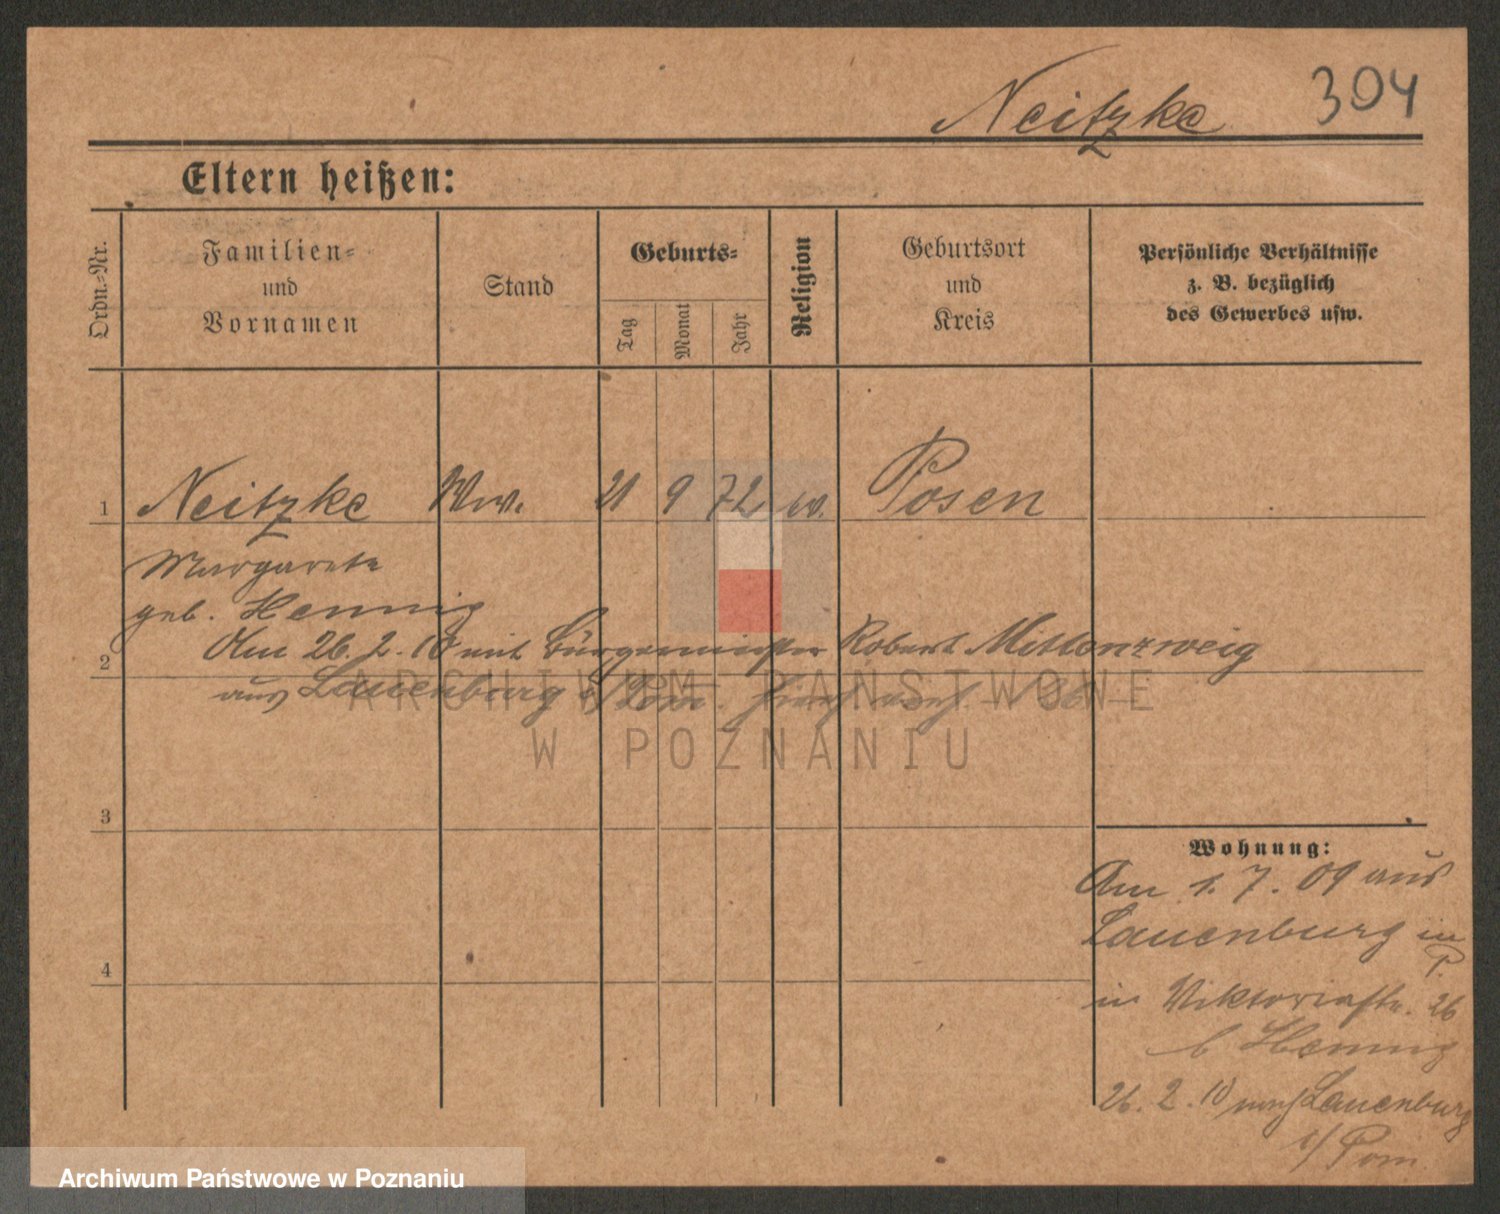 Neitzke 304
Eltern heißen:
Ordn.=Nr.
Familien=
und
Vornamen
Stand
Geburts=
Tag
Monat
Jahr
Religion
Geburtsort
und
Kreis
Persönliche Verhältnisse
z. B. bezüglich
des Gewerbes usw.
1 Neitzke Ww. 21 9 72 ev. Posen
Margarete
geb. Hennig
2 Am 26. 2. 10 mit Bürgermeister Robert Mittenzweig
aus Lauenburg i/Pom.
3
4
Wohnung:
Am 1. 7. 09 aus
Lauenburg in
P.
in Viktoriastr. 26
b Hennig
26. 2. 10 nach Lauenburg
i/Pom.
ARCHIWUM PAŃSTWOWE
W POZNANIU
Archiwum Państwowe w Poznaniu